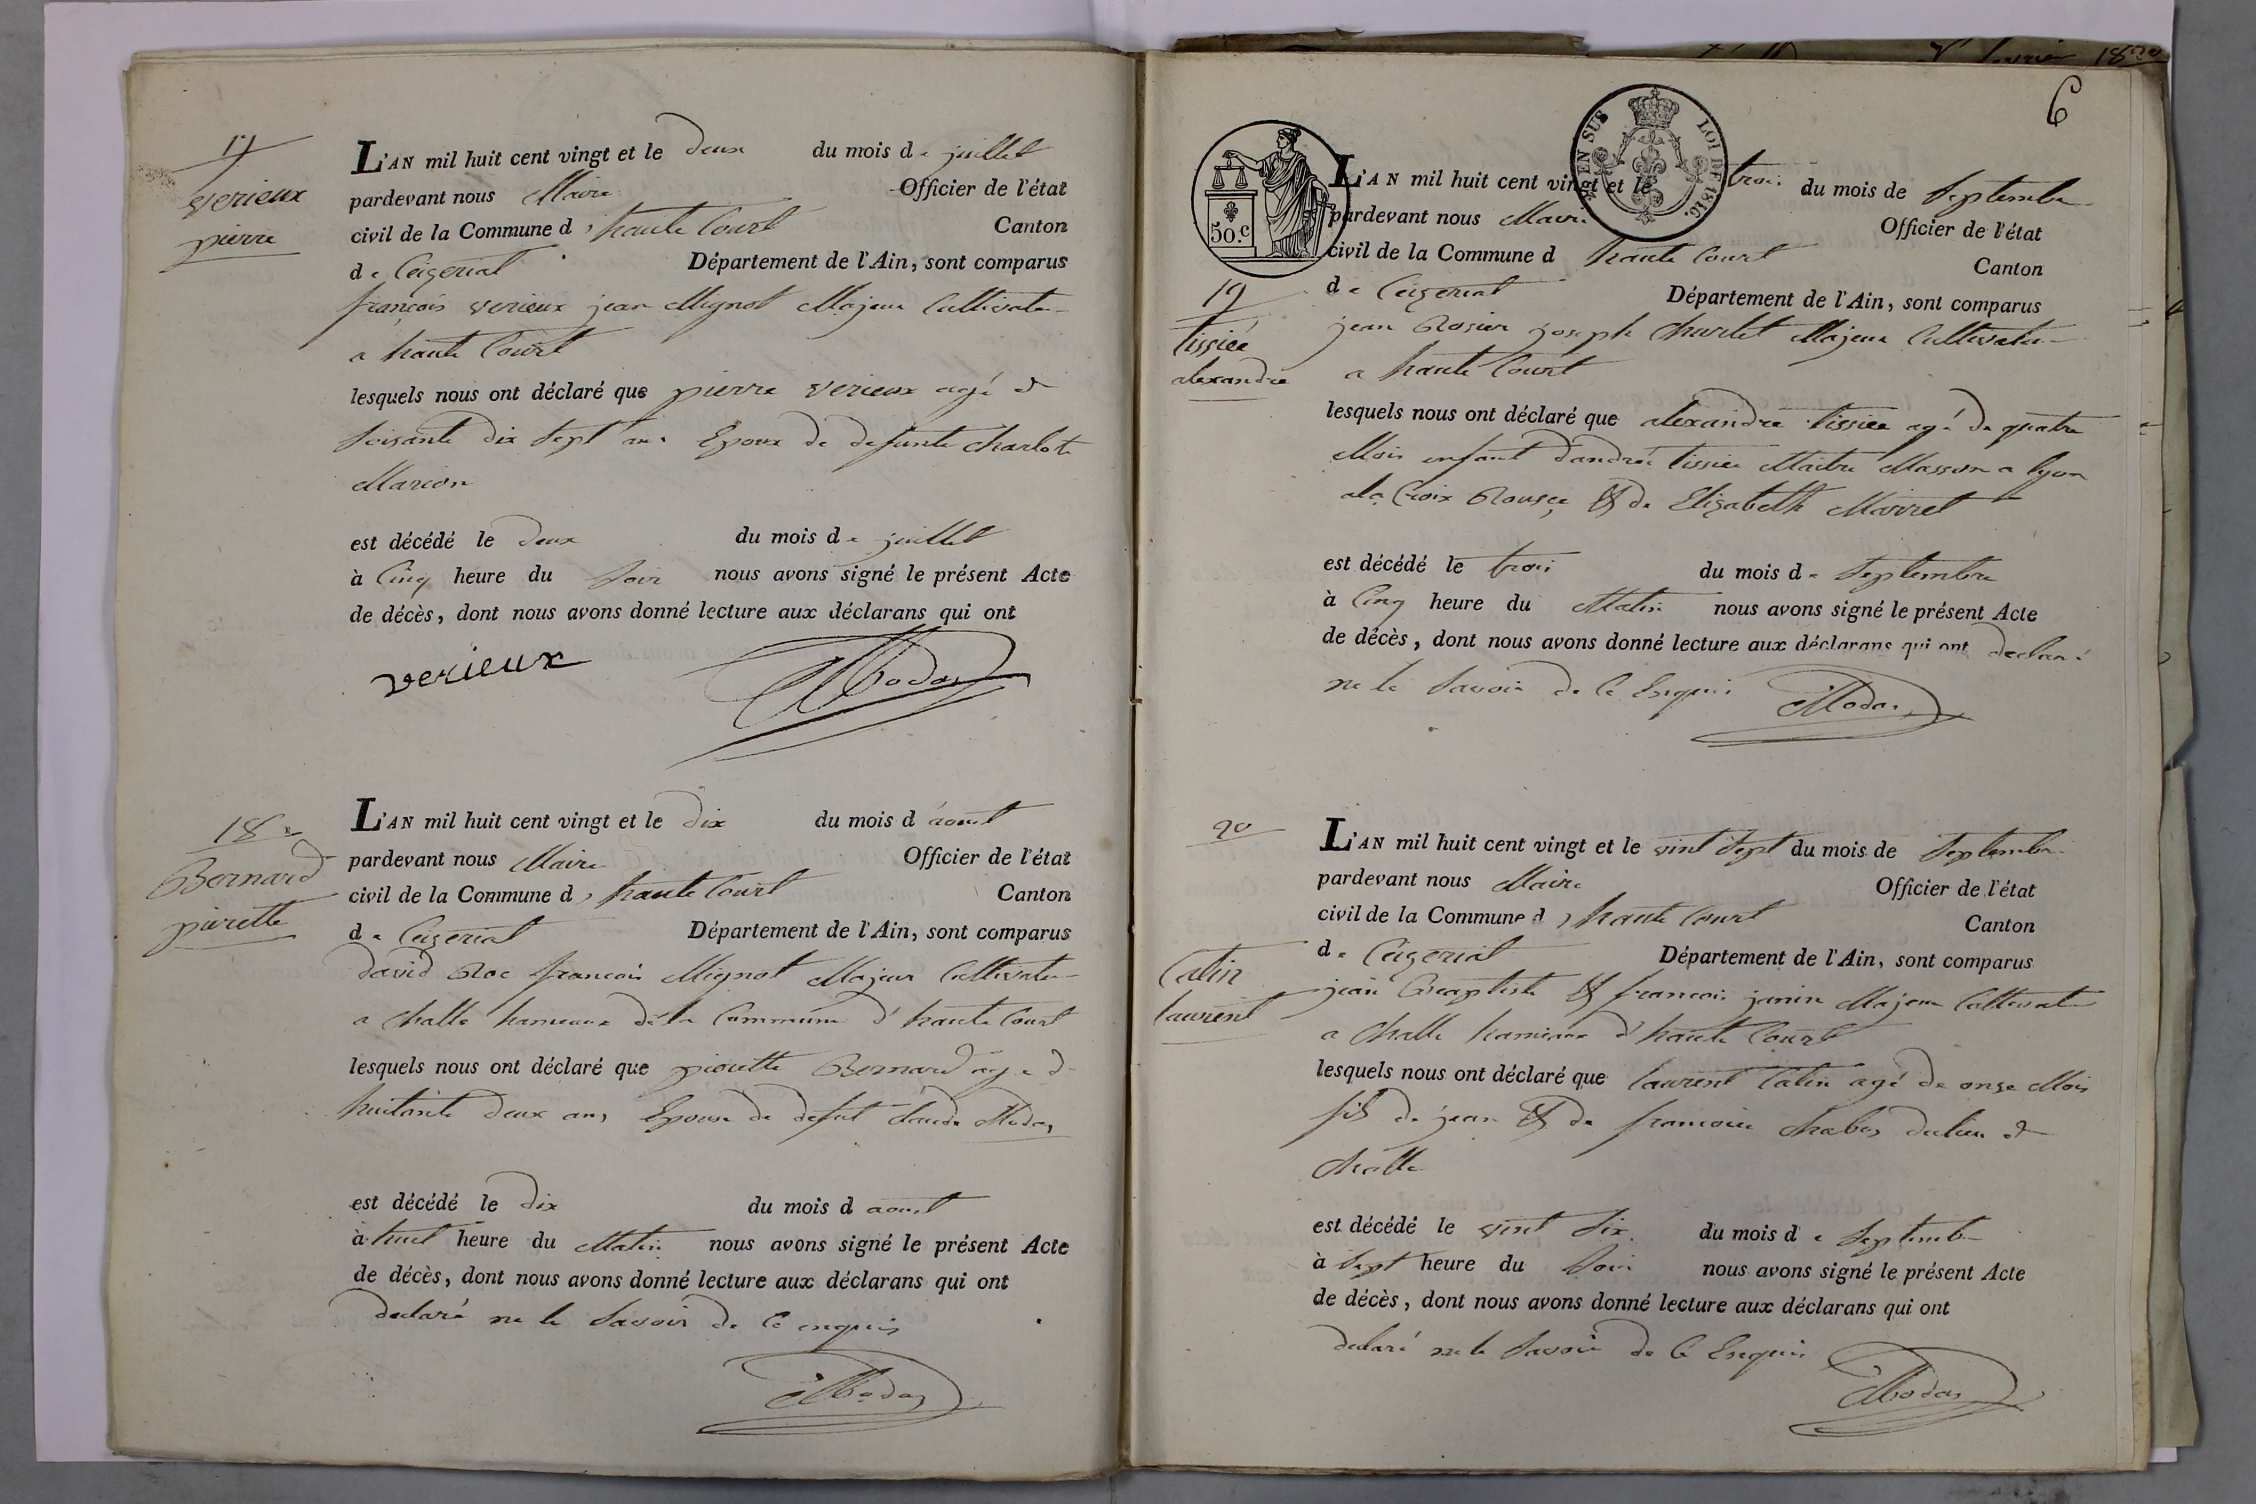 17
verieux
pierre
L'AN mil huit cent vingt et le deux du mois de juillet
pardevant nous Maire Officier de l'état
civil de la Commune d'haute Court Canton
de Ceizeriat Département de l'Ain, sont comparus
françois verieux jean Mignot Majeur Cultivateu
a haute Court
lesquels nous ont déclaré que pierre verieux agé de
soisante dix sept ans Epoux de defunte charlote
Marion
est décédé le deux du mois de juillet
à Cinq heure du soir nous avons signé le présent Acte
de décès, dont nous avons donné lecture aux déclarans qui ont
verieux Modas
18
Bernard
pierette
L'AN mil huit cent vingt et le dix du mois d aoust
pardevant nous Maire Officier de l'état
civil de la Commune d'haute Court Canton
de Ceizeriat Département de l'Ain, sont comparus
david Roc francois Mignot Majeur Cultivateu
a challe hameaux de la Commune d'haute Court
lesquels nous ont déclaré que pierette Bernard agé de
huitante deux ans Epouse de defut Claude Modas
est décédé le dix du mois d aoust
à huit heure du Matin nous avons signé le présent Acte
de décès, dont nous avons donné lecture aux déclarans qui ont
declaré ne le savoir de ce enquis
Modas
6
50.c
EN SUS LOI DE 1816.
19
tissiée
alexandre
L'AN mil huit cent vingt et le trois du mois de septembre
pardevant nous Maire Officier de l'état
civil de la Commune d haute Court Canton
de Ceizeriat Département de l'Ain, sont comparus
jean Rosier joseph Churlet Majeur Cultivateu
a haute Court
lesquels nous ont déclaré que alexandre tissiée agé de quatre
Mois enfant d'andrée tissiée Maitre Masson a lyon
a la Croix Rousse & de Elizabeth Marret
est décédé le trois du mois de septembre
à Cinq heure du Matin nous avons signé le présent Acte
de décès, dont nous avons donné lecture aux déclarans qui ont declaré
ne le savoir de ce Enquis Modas
20
Catin
laurent
L'AN mil huit cent vingt et le vint sept du mois de septembre
pardevant nous Maire Officier de l'état
civil de la Commune d'haute Court Canton
de Ceizeriat Département de l'Ain, sont comparus
jean Baptiste & francois janin Majeur Cultivate
a challe hameaux d'haute Court
lesquels nous ont déclaré que laurent Catin agé de onze Mois
fils de jean & de francoise chabes du lieu de
challe
est décédé le vint six du mois de septemb
à sept heure du soir nous avons signé le présent Acte
de décès, dont nous avons donné lecture aux déclarans qui ont
declaré ne le savoir de ce Enquis
Modas